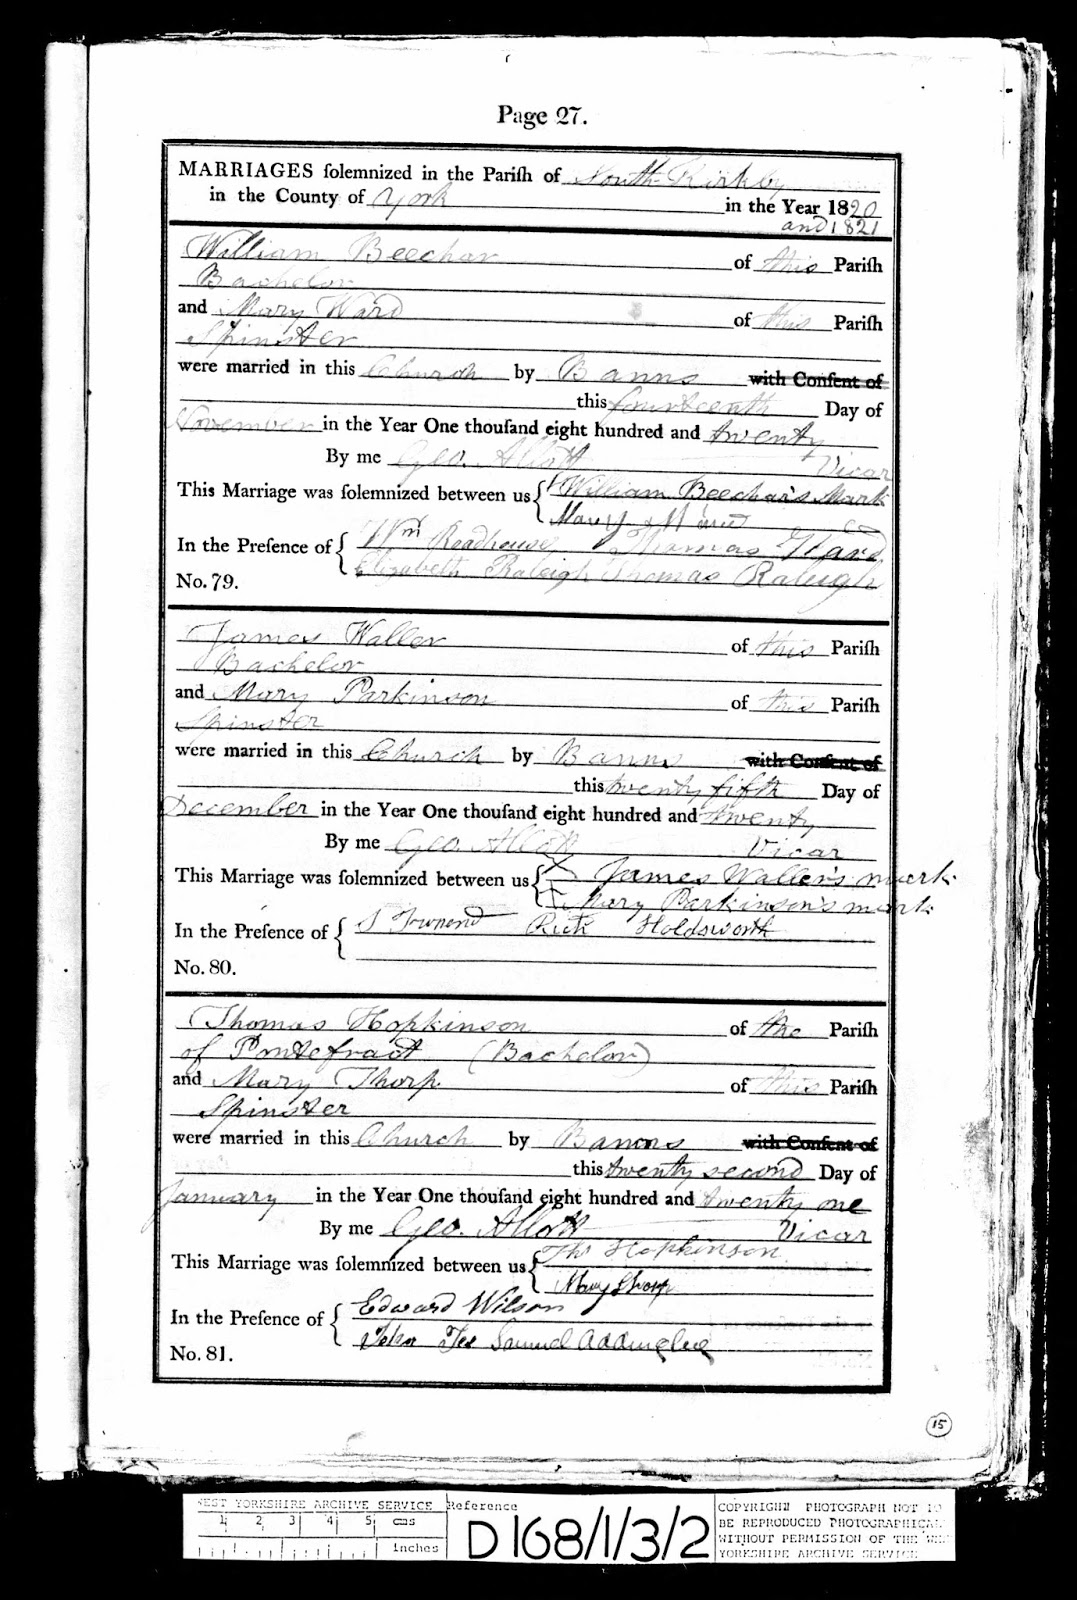 Page 27.
MARRIAGES solemnized in the Parish of South-Kirkby
in the County of York in the Year 1820
and 1821
William Beechar of this Parish
Bachelor
and Mary Ward of this Parish
Spinster
were married in this Church by Banns with Consent of
this fourteenth Day of
November in the Year One thousand eight hundred and twenty
By me Geo. Allott Vicar
This Marriage was solemnized between us William Beechar's Mark
Mary
In the Presence of Wm Roadhouse Thomas Ward
Elizabeth Raleigh Thomas Raleigh
No. 79.
James Waller of this Parish
Bachelor
and Mary Parkinson of this Parish
Spinster
were married in this Church by Banns with Consent of
this twenty fifth Day of
December in the Year One thousand eight hundred and twenty
By me Geo. Allott Vicar
This Marriage was solemnized between us X James Waller's mark
X Mary Parkinson's mark
In the Presence of J Townend Ruth Holdsworth
No. 80.
Thomas Hopkinson of the Parish
of Pontefract (Bachelor)
and Mary Thorp of this Parish
Spinster
were married in this Church by Banns with Consent of
this twenty second Day of
January in the Year One thousand eight hundred and twenty one
By me Geo. Allott Vicar
This Marriage was solemnized between us Thos Hopkinson
Mary Thorp
In the Presence of Edward Wilson
John Samuel
No. 81.
15
WEST YORKSHIRE ARCHIVE SERVICE
1 2 3 4 5 cms
inches
Reference
D168/1/3/2
COPYRIGHT PHOTOGRAPH NOT TO
BE REPRODUCED PHOTOGRAPHICAL
WITHOUT PERMISSION OF THE
YORKSHIRE ARCHIVE SERVICE